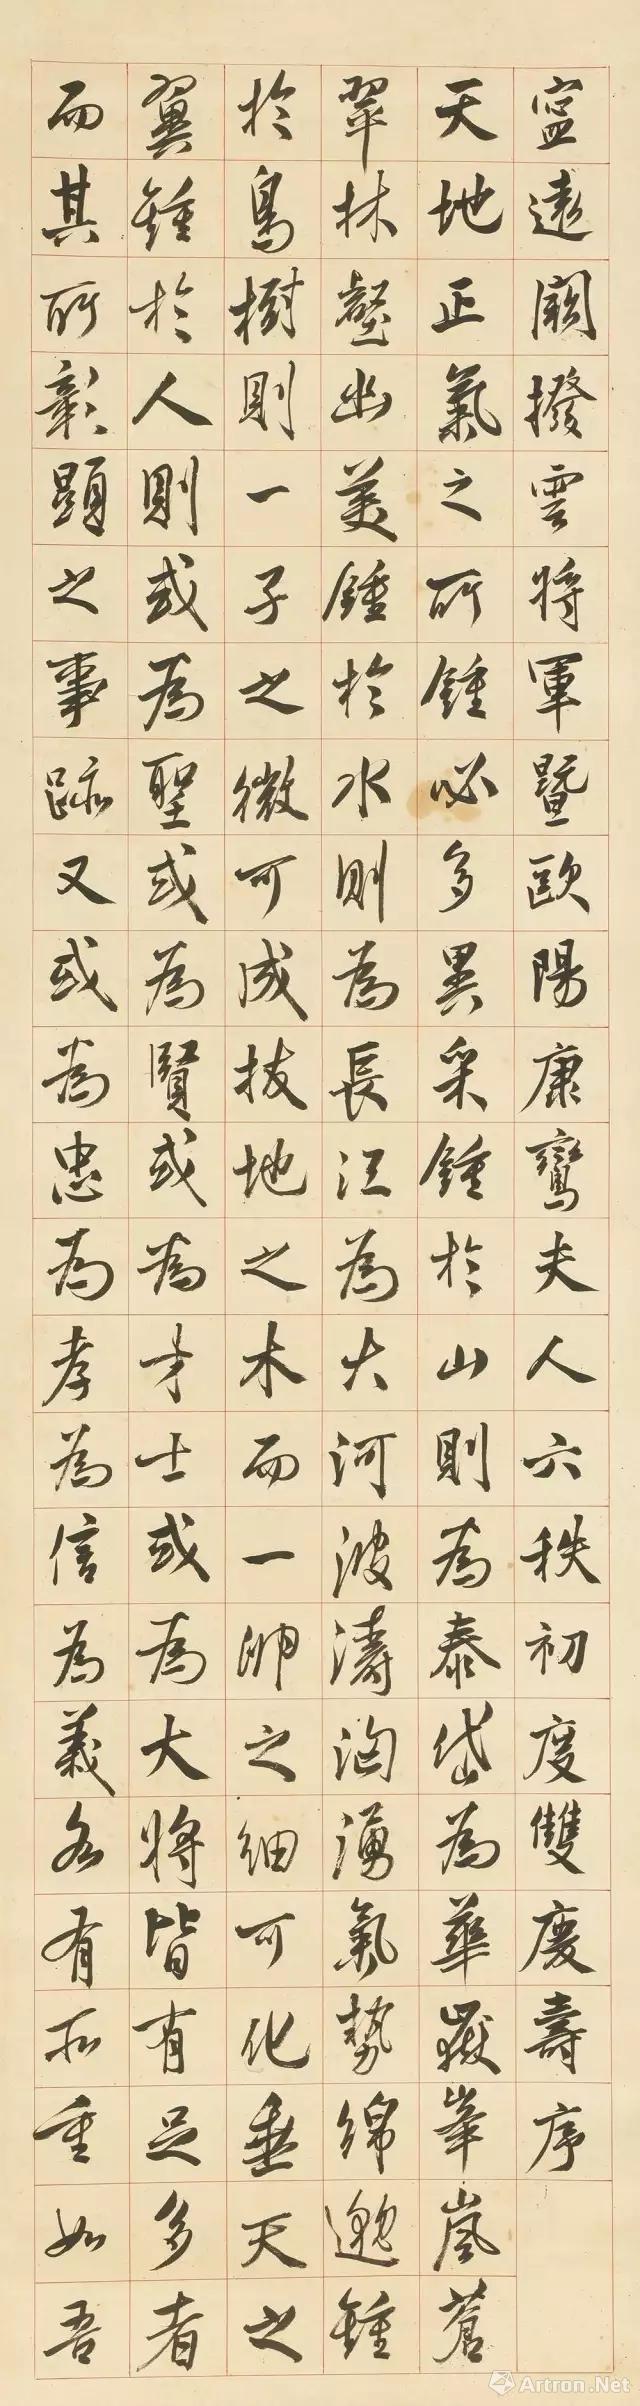 寧遠闞撥雲將軍暨歐陽康鸞夫人六秩初度雙慶壽序
天地正氣之所鍾必多異采鍾於山則為泰岱為華嶽峯嵐蒼
翠林壑幽美鍾於水則為長江為大河波濤洶湧氣勢綿邈鍾
於鳥樹則一子之微可成拔地之木而一卵之細可化垂天之
翼鍾於人則或為聖或為賢或為才士或為大將皆有足多者
而其所彰顯之事跡又或為忠為孝為信為義各有所重如吾
Artron.Net